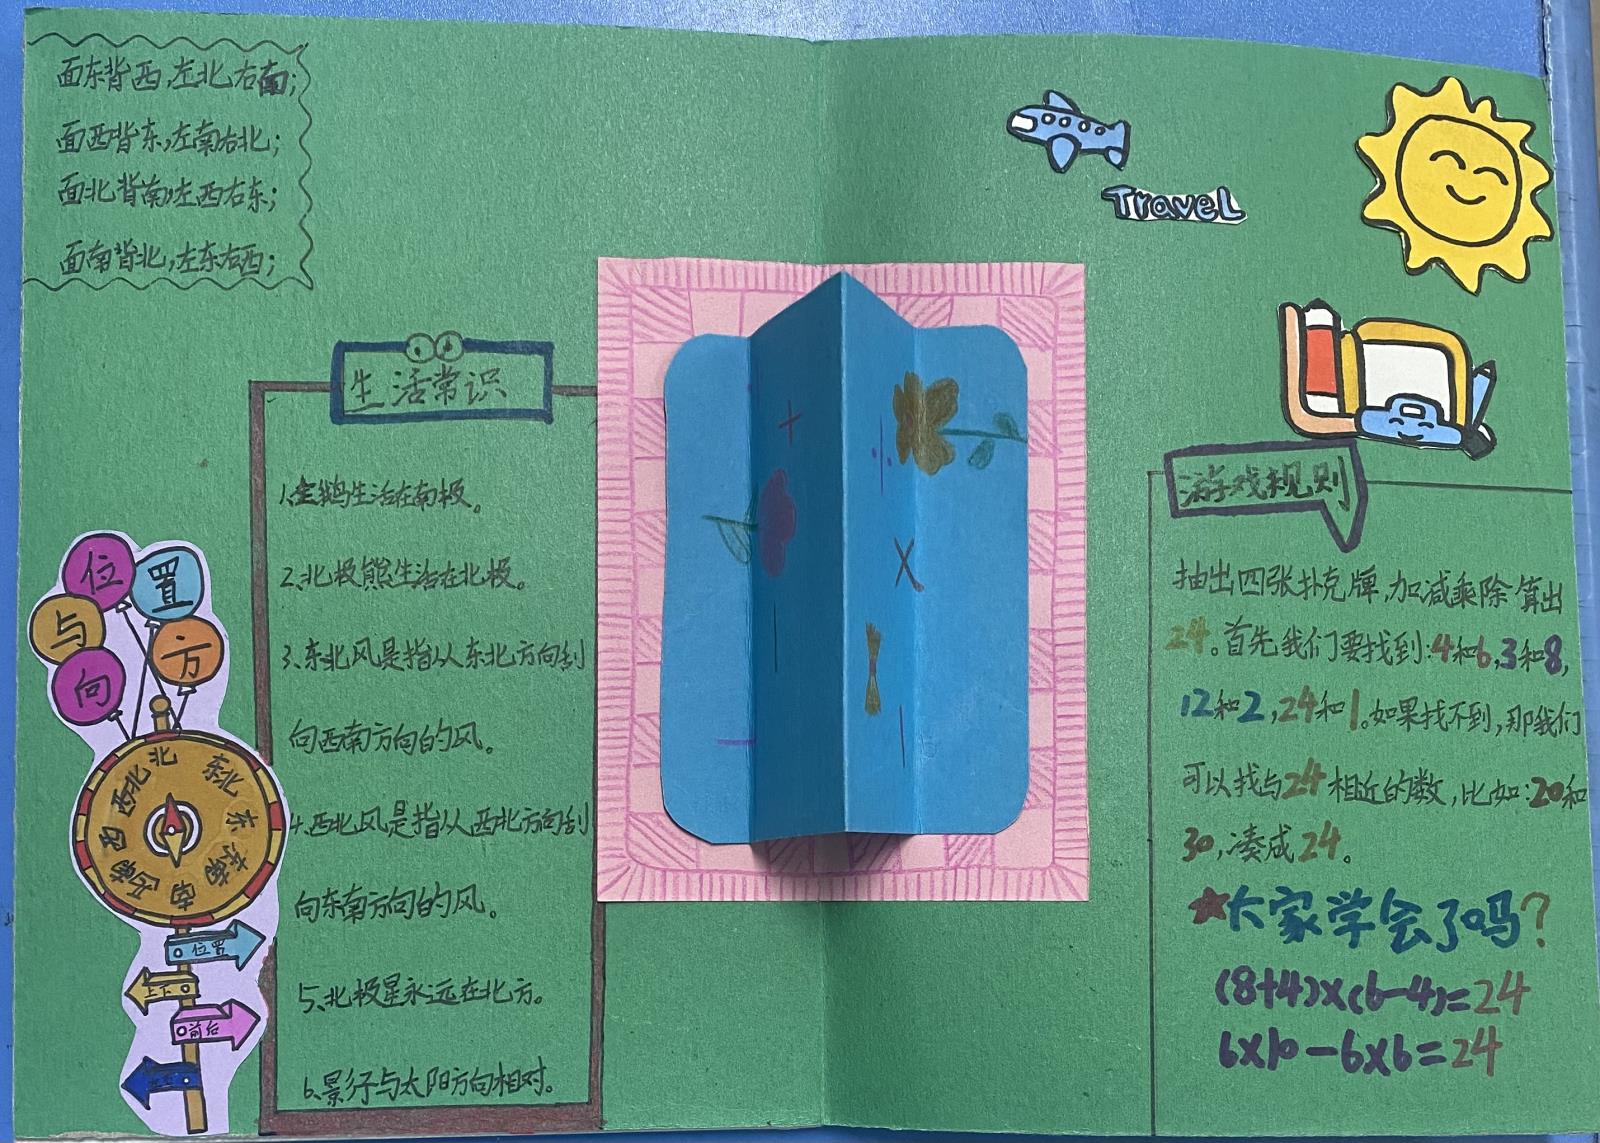 面东背西,左北右南;
面西背东,左南右北;
面北背南,左西右东;
面南背北,左东右西;
生活常识
1、企鹅生活在南极。
2、北极熊生活在北极。
3、东北风是指从东北方向刮
向西南方向的风。
4、西北风是指从西北方向刮
向东南方向的风。
5、北极星永远在北方。
6、影子与太阳方向相对。
位置
与方
向
北
东北
东
东南
南
西南
西
西北
位置
上下
前后
+
÷
×
-
Travel
游戏规则
抽出四张扑克牌,加减乘除算出
24。首先我们要找到:4和6,3和8,
12和2,24和1。如果找不到,那我们
可以找与24相近的数,比如:20和
30,凑成24。
★大家学会了吗?
(8+4)×(6-4)=24
6×10-6×6=24